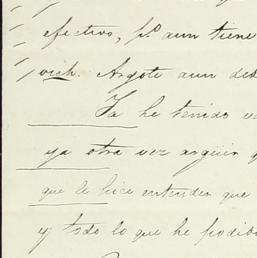 efectivo, pº aun tiene
vich. Argote aun deb
Ya he tenido ve
ya otra vez argüir q
que le hice entender que
y todo lo que he podido